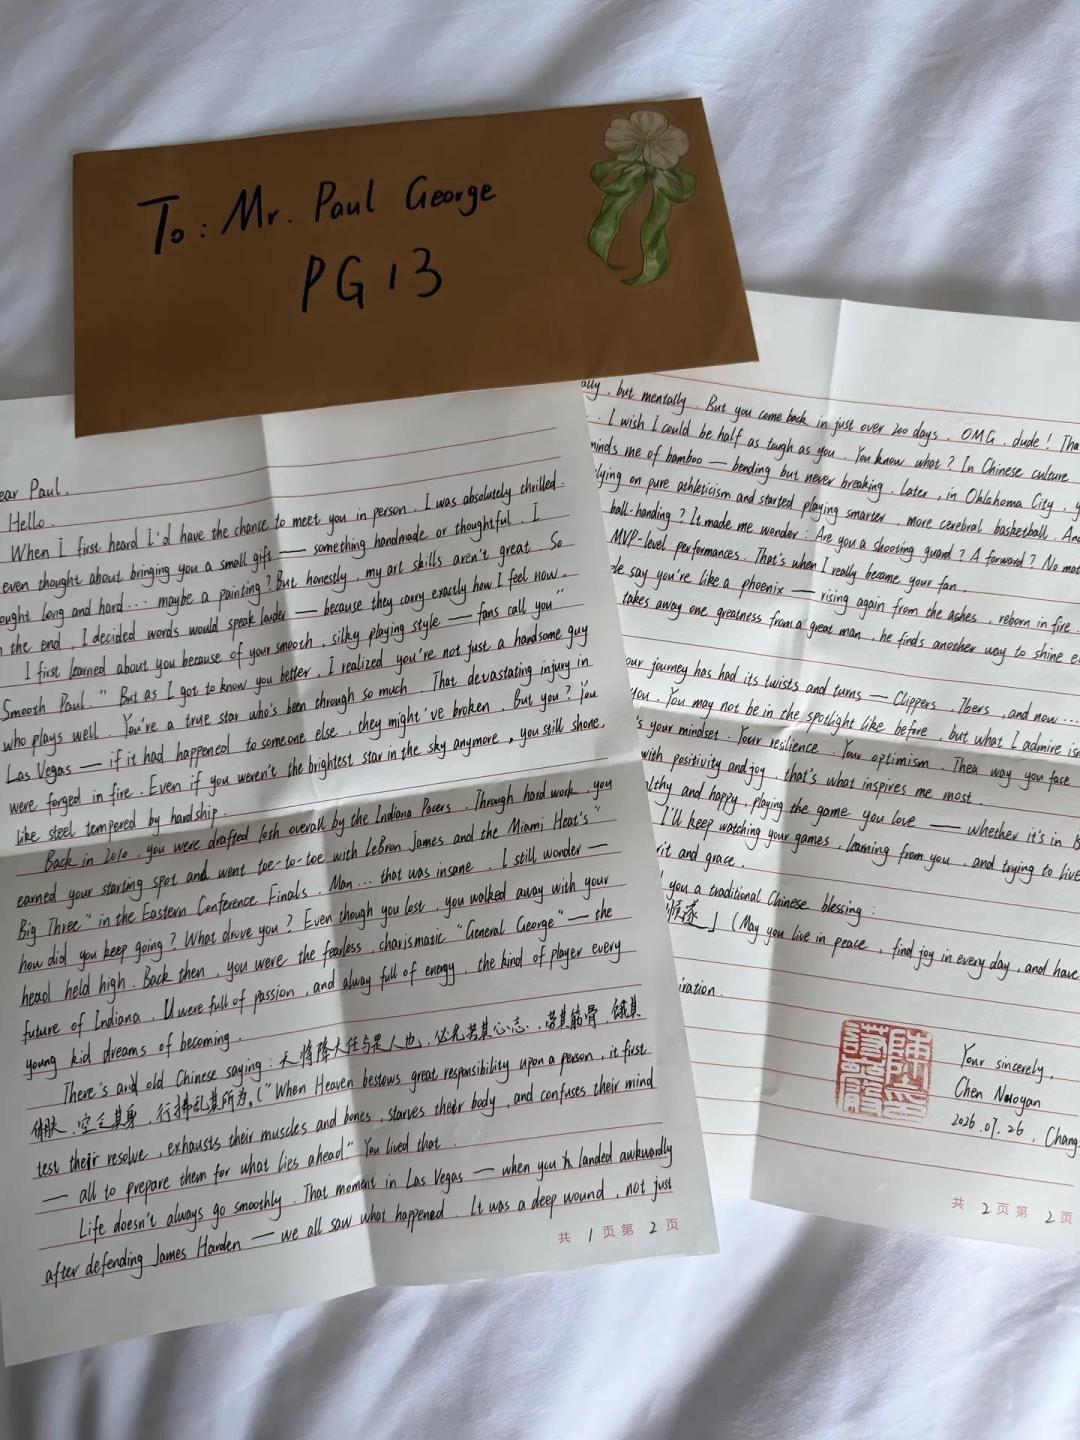 To: Mr. Paul George
PG13
ear Paul.
Hello.
When I first heard I'd have the chance to meet you in person. I was absolutely thrilled.
even thought about bringing you a small gift — something handmade or thoughtful. I
ought long and hard... maybe a painting? But honestly, my art skills aren't great. So
the end, I decided words would speak louder — because they carry exactly how I feel now.
I first learned about you because of your smooth, silky playing style — fans call you "
Smooth Paul." But as I got to know you better, I realized you're not just a handsome guy
who plays well. You're a true star who's been through so much. That devastating injury in
Las Vegas — if it had happened to someone else, they might've broken. But you? You
were forged in fire. Even if you weren't the brightest star in the sky anymore, you still shone.
like steel tempered by hardship.
Back in 2010, you were drafted 10th overall by the Indiana Pacers. Through hard work, you
earned your starting spot and went toe-to-toe with LeBron James and the Miami Heat's "
Big Three" in the Eastern Conference Finals. Man... that was insane. I still wonder —
how did you keep going? What drove you? Even though you lost, you walked away with your
head held high. Back then, you were the fearless, charismatic "General George" — the
future of Indiana. U were full of passion, and alway full of energy, the kind of player every
young kid dreams of becoming.
There's and old Chinese saying: 天将降大任与是人也，必先苦其心志，劳其筋骨，饿其
体肤，空乏其身，行拂乱其所为。("When Heaven bestows great responsibility upon a person, it first
test their resolve, exhausts their muscles and bones, starves their body, and confuses their mind
— all to prepare them for what lies ahead." You lived that
Life doesn't always go smoothly. That moment in Las Vegas — when you landed awkwardly
after defending James Harden — we all saw what happened. It was a deep wound, not just
共 1 页 第 2 页
ally, but mentally. But you come back in just over 200 days. OMG, dude! Tha
. I wish I could be half as tough as you. You know what? In Chinese culture
minds me of bamboo — bending but never breaking. Later, in Oklahoma City, y
lying on pure athleticism and started playing smarter, more cerebral basketball. An
ball-handing? It made me wonder: Are you a shooting guard? A forward? No mat
MVP-level performances. That's when I really became your fan.
ple say you're like a phoenix — rising again from the ashes, reborn in fire.
takes away one greatness from a great man, he finds another way to shine e
our journey has had its twists and turns — Clippers, 76ers, and now...
you. You may not be in the spotlight like before, but what I admire isn
's your mindset. Your resilience. Your optimism. Thea way you face
with positivity and joy, that's what inspires me most.
althy and happy, playing the game you love — whether it's in B
I'll keep watching your games, learning from you, and trying to live
rit and grace.
you a traditional Chinese blessing:
顺遂」 (May you live in peace, find joy in every day, and have
iration.
Your sincerely,
Chen Nuoyan
2026.07.26, Chang
共 2 页 第 2 页